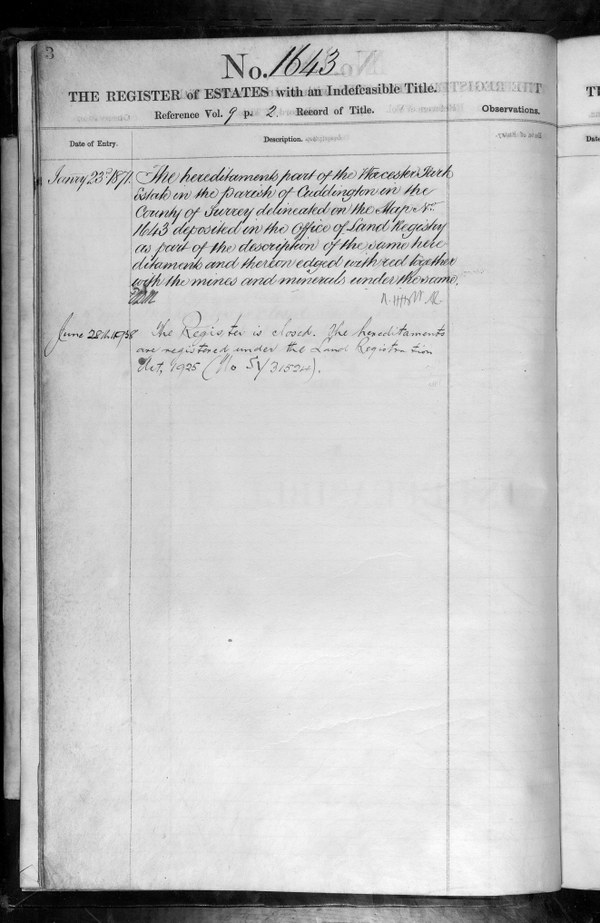 3
No. 1643
THE REGISTER of ESTATES with an Indefeasible Title.
Reference Vol. 9 p. 2. Record of Title.
Observations.
Date of Entry.
Description.
Janry 23rd 1871.
The hereditaments part of the Worcester Park
Estate in the Parish of Cuddington in the
County of Surrey delineated on the Map No.
1643 deposited in the Office of Land Registry
as part of the description of the same here-
ditaments and thereon edged with red together
with the mines and minerals under the same.
June 28th 1938
The Register is closed. The hereditaments
are registered under the Land Registration
Act, 1925 (No SY 31524).
TH
Date